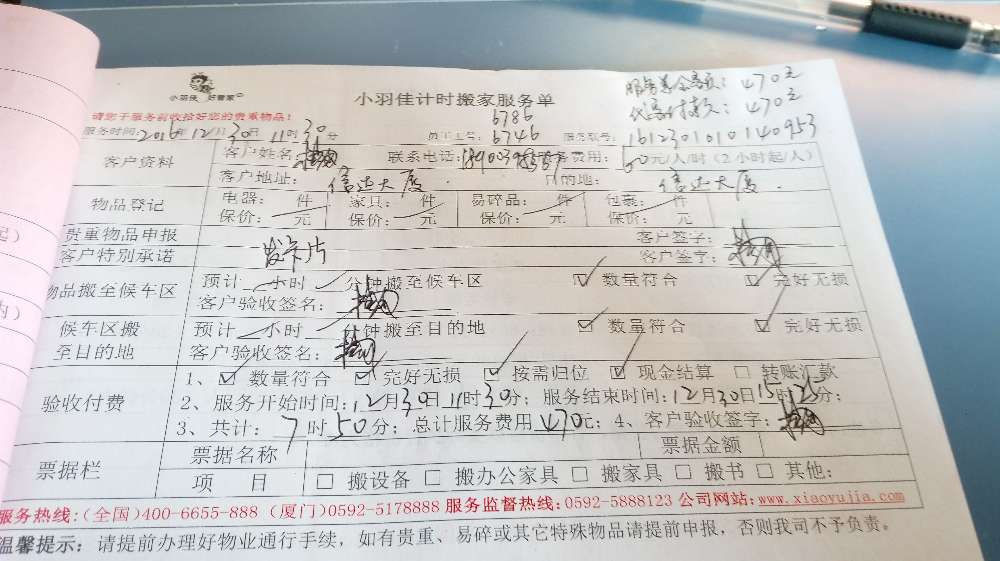 服务总金额：470元
代办付款：470元
小羽佳 好管家
小羽佳计时搬家服务单
请您于服务前收拾好您的贵重物品！
6786
服务时间：2016年12月30日11时30分 员工工号：6746 服务账号：1612301010140953
客户资料 客户姓名： 联系电话： 服务费用：60元/人/时（2小时起/人）
客户地址：信达大厦 目的地：信达大厦
物品登记 电器： 件 家具： 件 易碎品： 件 包裹： 件
保价： 元 保价： 元 保价： 元 保价： 元
贵重物品申报 客户签字：
客户特别承诺 发卡片 客户签字：
物品搬至候车区 预计 小时 分钟搬至候车区 ☑ 数量符合 ☑ 完好无损
客户验收签名：
候车区搬至目的地 预计 小时 分钟搬至目的地 ☑ 数量符合 ☑ 完好无损
客户验收签名：
验收付费 1、☑ 数量符合 ☑ 完好无损 ☑ 按需归位 ☑ 现金结算 □ 转账汇款
2、服务开始时间：12月30日11时30分；服务结束时间：12月30日15时25分；
3、共计：7时50分；总计服务费用470元；4、客户验收签字：
票据栏 票据名称 票据金额
项 目 □ 搬设备 □ 搬办公家具 □ 搬家具 □ 搬书 □ 其他：
服务热线：(全国)400-6655-888 (厦门)0592-5178888 服务监督热线：0592-5888123 公司网站：www.xiaoyujia.com
温馨提示：请提前办理好物业通行手续，如有贵重、易碎或其它特殊物品请提前申报，否则我司不予负责。